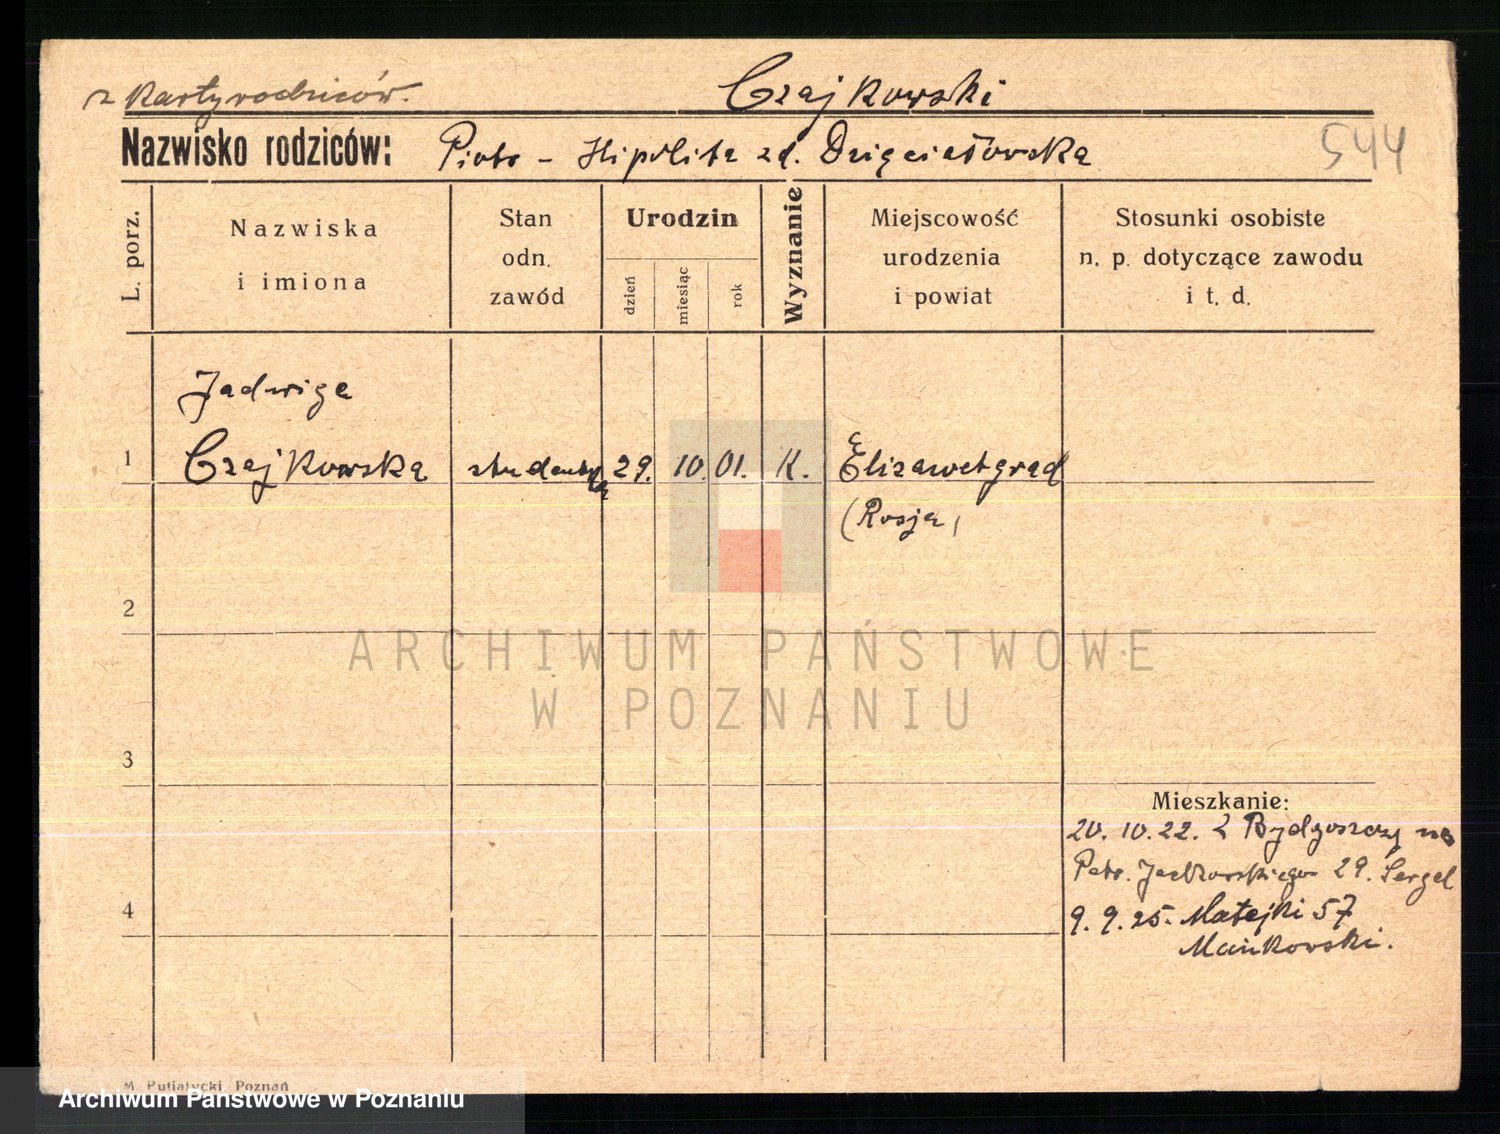 z karty rodziców.
Czajkowski
Nazwisko rodziców: Piotr - Hipolita zd. Dzięciałowska
544
L. porz.
Nazwiska
i imiona
Stan
odn.
zawód
Urodzin
dzień
miesiąc
rok
Wyznanie
Miejscowość
urodzenia
i powiat
Stosunki osobiste
n. p. dotyczące zawodu
i t. d.
Jadwiga
1 Czajkowska studentka 29. 10. 01. K. Elizawetgrad
(Rosja)
2
3
4
ARCHIWUM PAŃSTWOWE
W POZNANIU
Mieszkanie:
20. 10. 22. z Bydgoszczy na
Patr. Jackowskiego 29. Sergel
9. 9. 25. Matejki 57
Mańkowski.
M. Putiatycki, Poznań
Archiwum Państwowe w Poznaniu